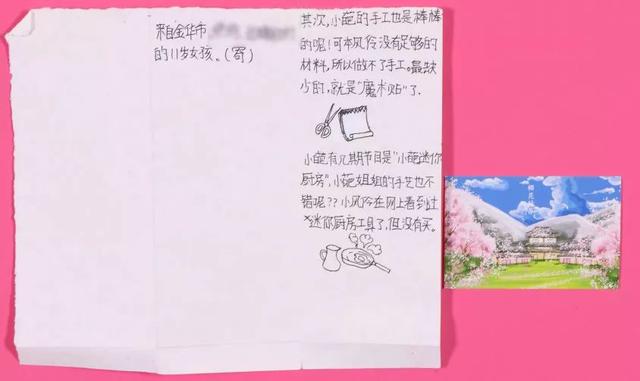 来自金华市,
的11岁女孩。(寄)
其次,小葩的手工也是棒棒
的呢!可本风伶没有足够的
材料,所以做不了手工。最缺
少的,就是“魔术贴”了.
小葩有几期节目是“小葩迷你
厨房”,小葩姐姐的手艺也不
错呢??小风伶在网上看到过
“迷你厨房工具了,但没有买。